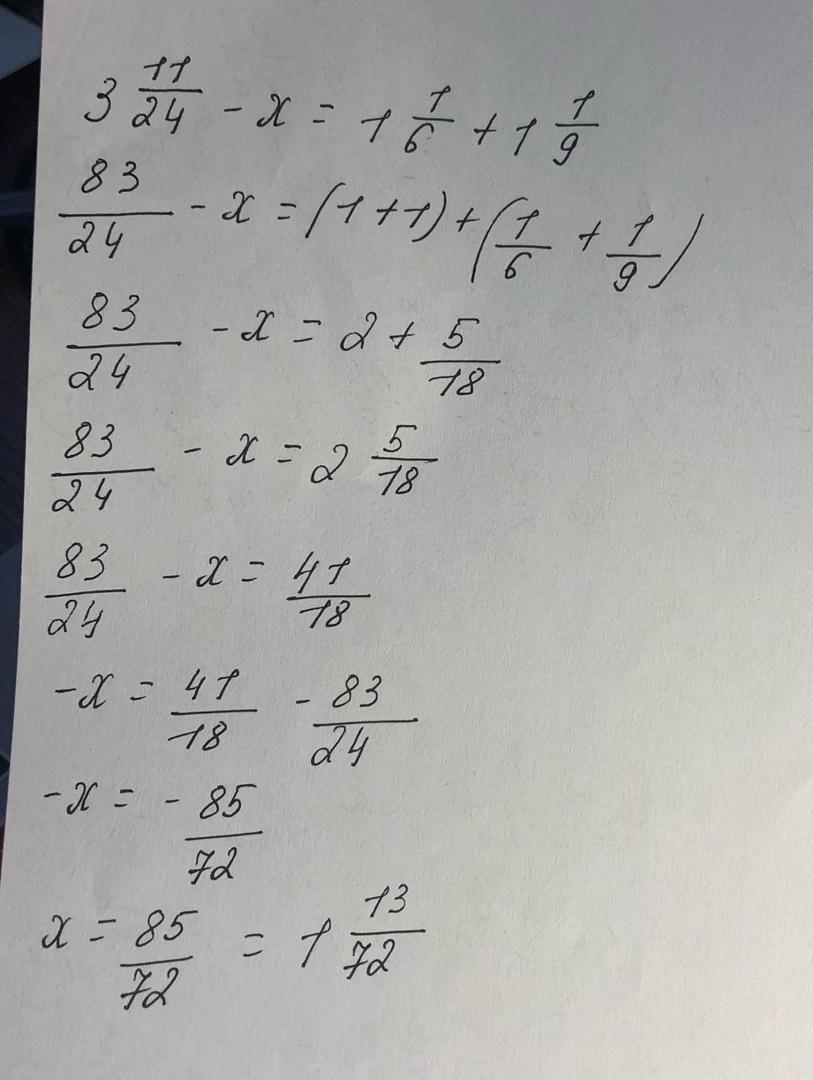 3 11/24 - x = 1 1/6 + 1 1/9
83/24 - x = (1+1) + (1/6 + 1/9)
83/24 - x = 2 + 5/18
83/24 - x = 2 5/18
83/24 - x = 41/18
-x = 41/18 - 83/24
-x = - 85/72
x = 85/72 = 1 13/72